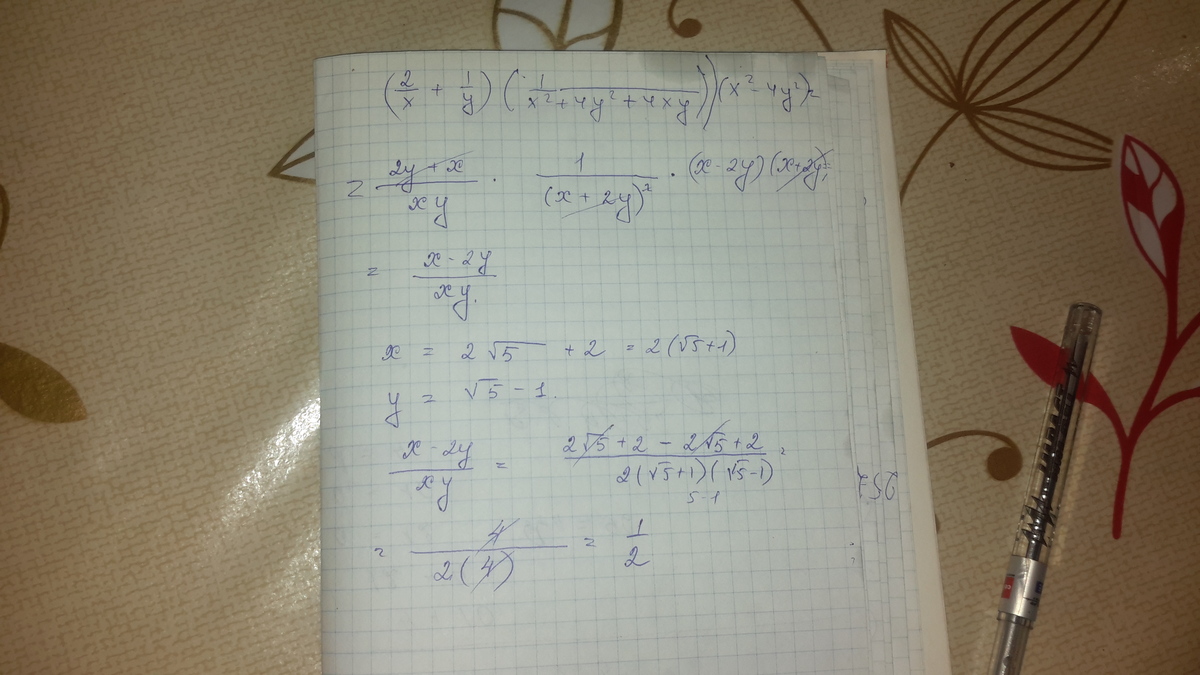 (2/x + 1/y) (1/(x² + 4y² + 4xy)) (x² - 4y²) =
= (2y + x)/(xy) · 1/(x + 2y)² · (x - 2y)(x + 2y) =
= (x - 2y)/(xy)
x = 2√5 + 2 = 2(√5 + 1)
y = √5 - 1.
(x - 2y)/(xy) = (2√5 + 2 - 2√5 + 2)/(2(√5 + 1)(√5 - 1)) =
5 - 1
= 4/(2(4)) = 1/2
257